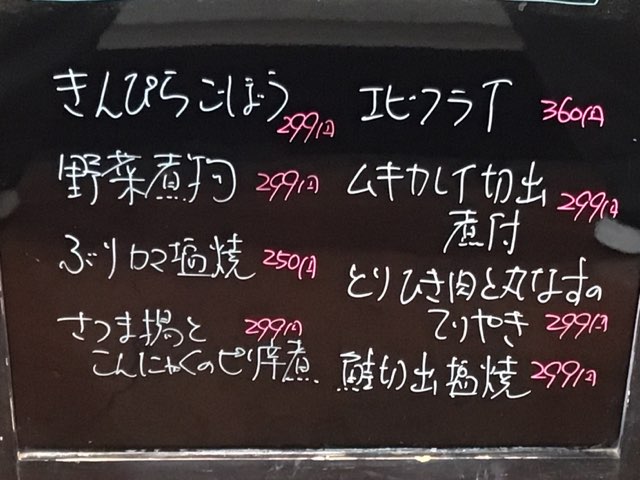 きんぴらごぼう 299円
野菜煮物 299円
ぶりカマ塩焼 250円
さつま揚と 299円
こんにゃくのピリ辛煮
エビフライ 360円
ムキカレイ切出 299円
煮付
とりひき肉と丸なすの
てりやき 299円
鮭切出塩焼 299円